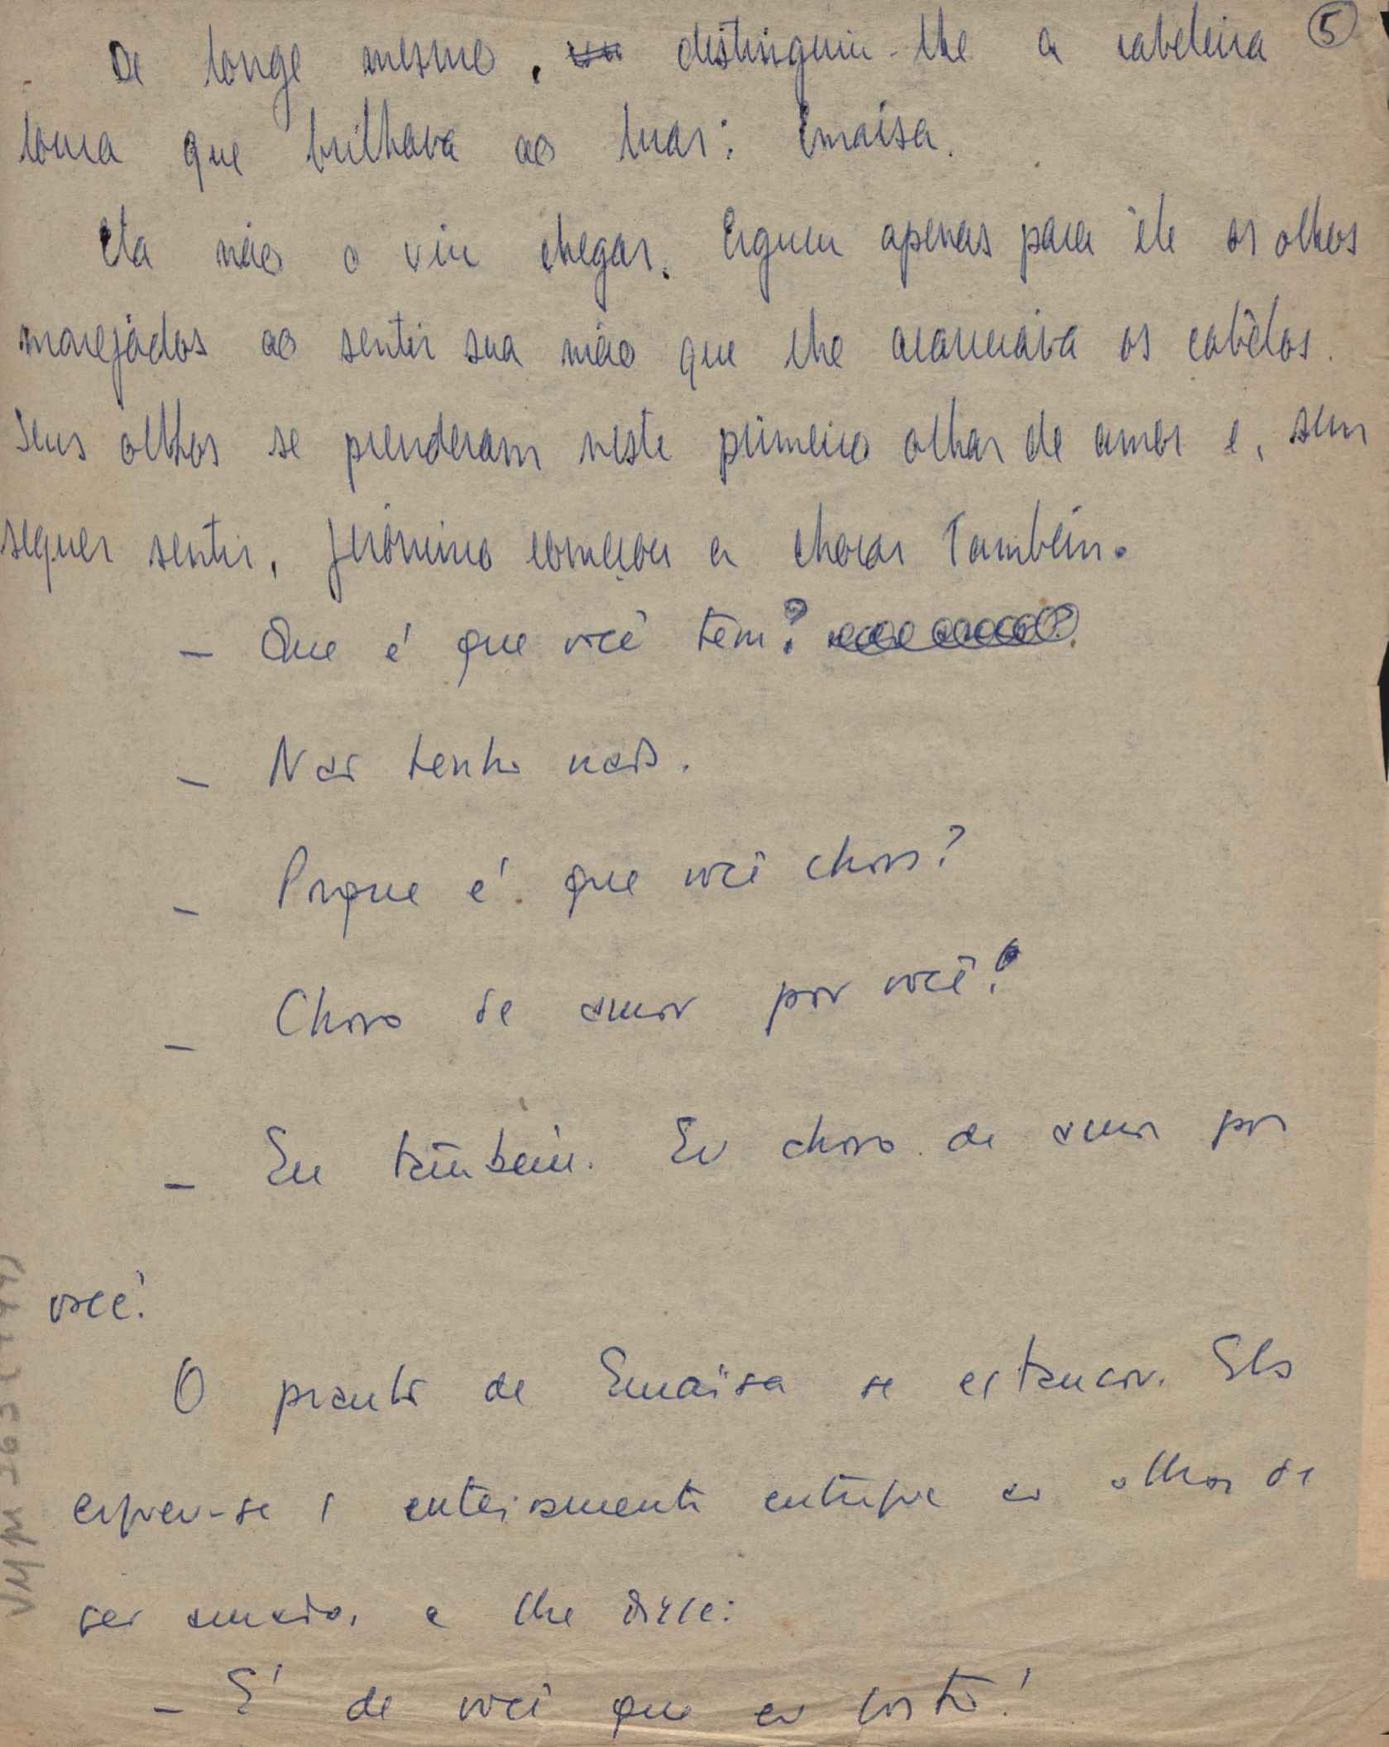 5
De longe mesmo, distinguiu-lhe a cabeleira
loura que brilhava ao luar: Emaísa.
Ela não o viu chegar. Ergueu apenas para êle os olhos
marejados ao sentir sua mão que lhe acariciava os cabêlos.
Seus olhos se prenderam neste primeiro olhar de amor e, sem
sequer sentir, Jerônimo começou a chorar também.
— Que é que você tem?
— Não tenho nada.
— Porque é que você chora?
— Choro de amor por você!
— Eu também. Eu choro de amor por
você!
O pranto de Emaísa se estancou. Ela
ergueu-se e os olhos de
seu amado, e lhe disse:
— É de você que eu gosto!
VMPI